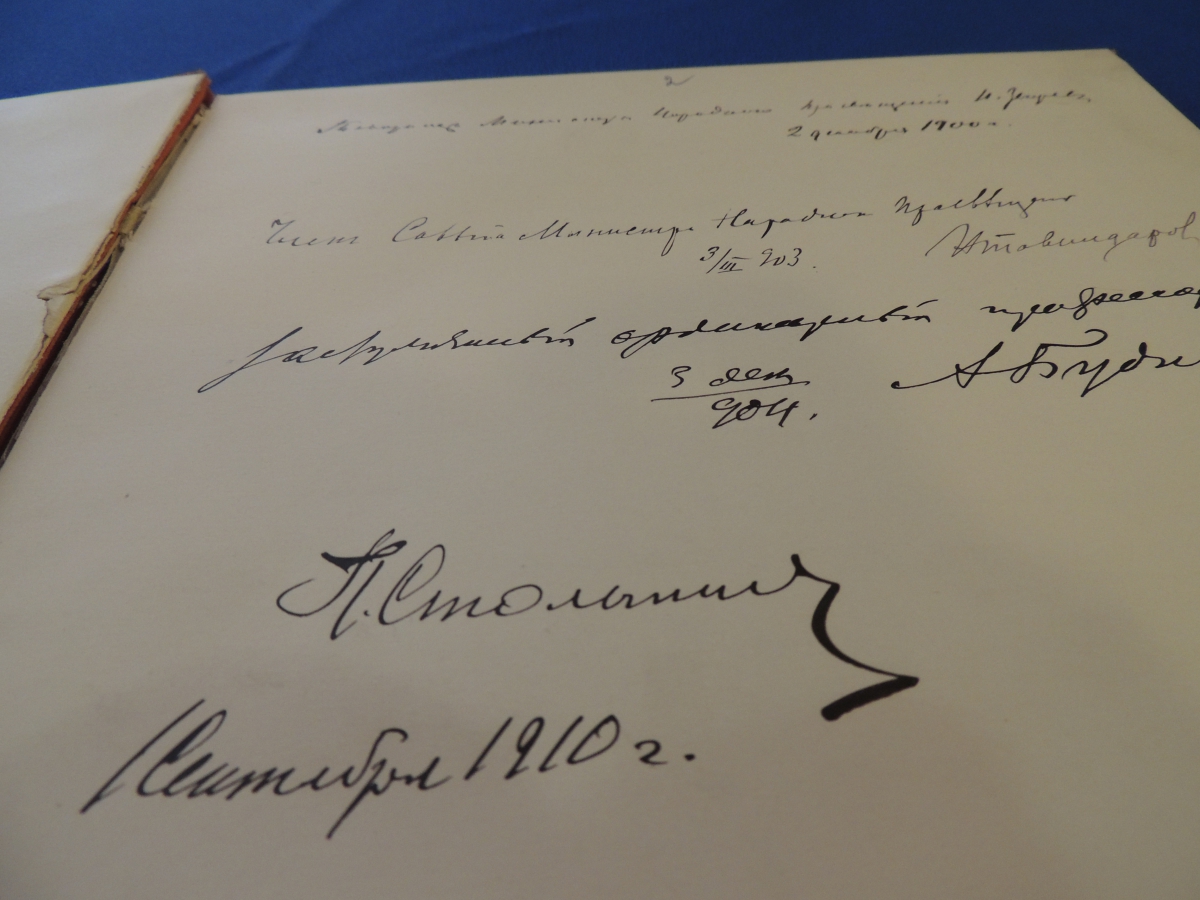 2
Товарищ Министра Народнаго Просвѣщенія Н. Звѣревъ
2 декабря 1900 г.
Членъ Совѣта Министра Народнаго Просвѣщенія
3/III 903.
заслуженный ординарный профессоръ
3 дек
904.
А Буди
П. Столыпинъ
1 Сентября 1910 г.